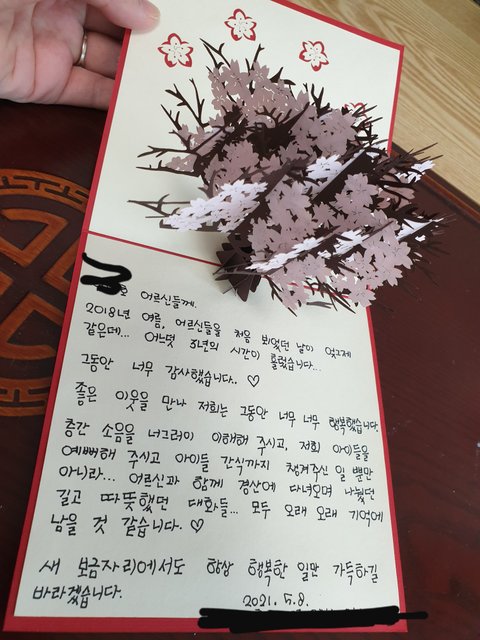 호 어르신들께.
2018년 여름, 어르신들을 처음 뵈었던 날이 엊그제
같은데... 어느덧 3년의 시간이 흘렀습니다...
그동안 너무 감사했습니다. ♡
좋은 이웃을 만나 저희는 그동안 너무 너무 행복했습니다.
층간 소음을 너그러이 이해해 주시고, 저희 아이들을
예뻐해 주시고 아이들 간식까지 챙겨주신 일 뿐만
아니라... 어르신과 함께 경산에 다녀오며 나눴던
길고 따뜻했던 대화들... 모두 오래 오래 기억에
남을 것 같습니다. ♡
새 보금자리에서도 항상 행복한 일만 가득하길
바라겠습니다.
2021. 5. 8.